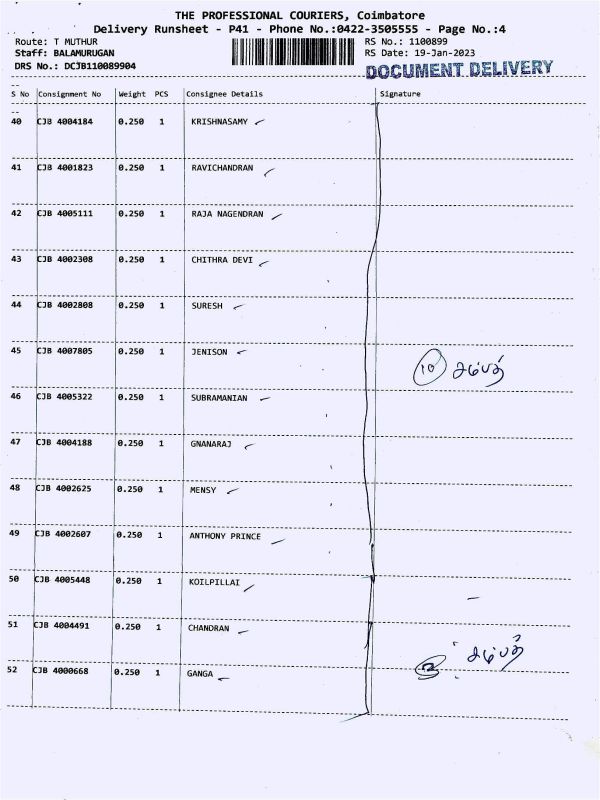 THE PROFESSIONAL COURIERS, Coimbatore
Delivery Runsheet - P41 - Phone No.:0422-3505555 - Page No.:4
Route: T MUTHUR RS No.: 1100899
Staff: BALAMURUGAN RS Date: 19-Jan-2023
DRS No.: DCJB110089904 DOCUMENT DELIVERY
S No Consignment No Weight PCS Consignee Details Signature
40 CJB 4004184 0.250 1 KRISHNASAMY
41 CJB 4001823 0.250 1 RAVICHANDRAN
42 CJB 4005111 0.250 1 RAJA NAGENDRAN
43 CJB 4002308 0.250 1 CHITHRA DEVI
44 CJB 4002808 0.250 1 SURESH
45 CJB 4007805 0.250 1 JENISON 10 சம்பத்
46 CJB 4005322 0.250 1 SUBRAMANIAN
47 CJB 4004188 0.250 1 GNANARAJ
48 CJB 4002625 0.250 1 MENSY
49 CJB 4002607 0.250 1 ANTHONY PRINCE
50 CJB 4005448 0.250 1 KOILPILLAI
51 CJB 4004491 0.250 1 CHANDRAN
சம்பத்
52 CJB 4000668 0.250 1 GANGA